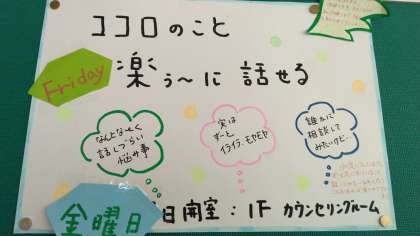 ココロのこと
Friday
楽ぅ〜に 話せる
なんとな〜く
話しづらい
悩み事
実は
ずーと
イライラ、モヤモヤ
誰かに
相談して
みたいケド…
金曜日
日開室：1F カウンセリングルーム